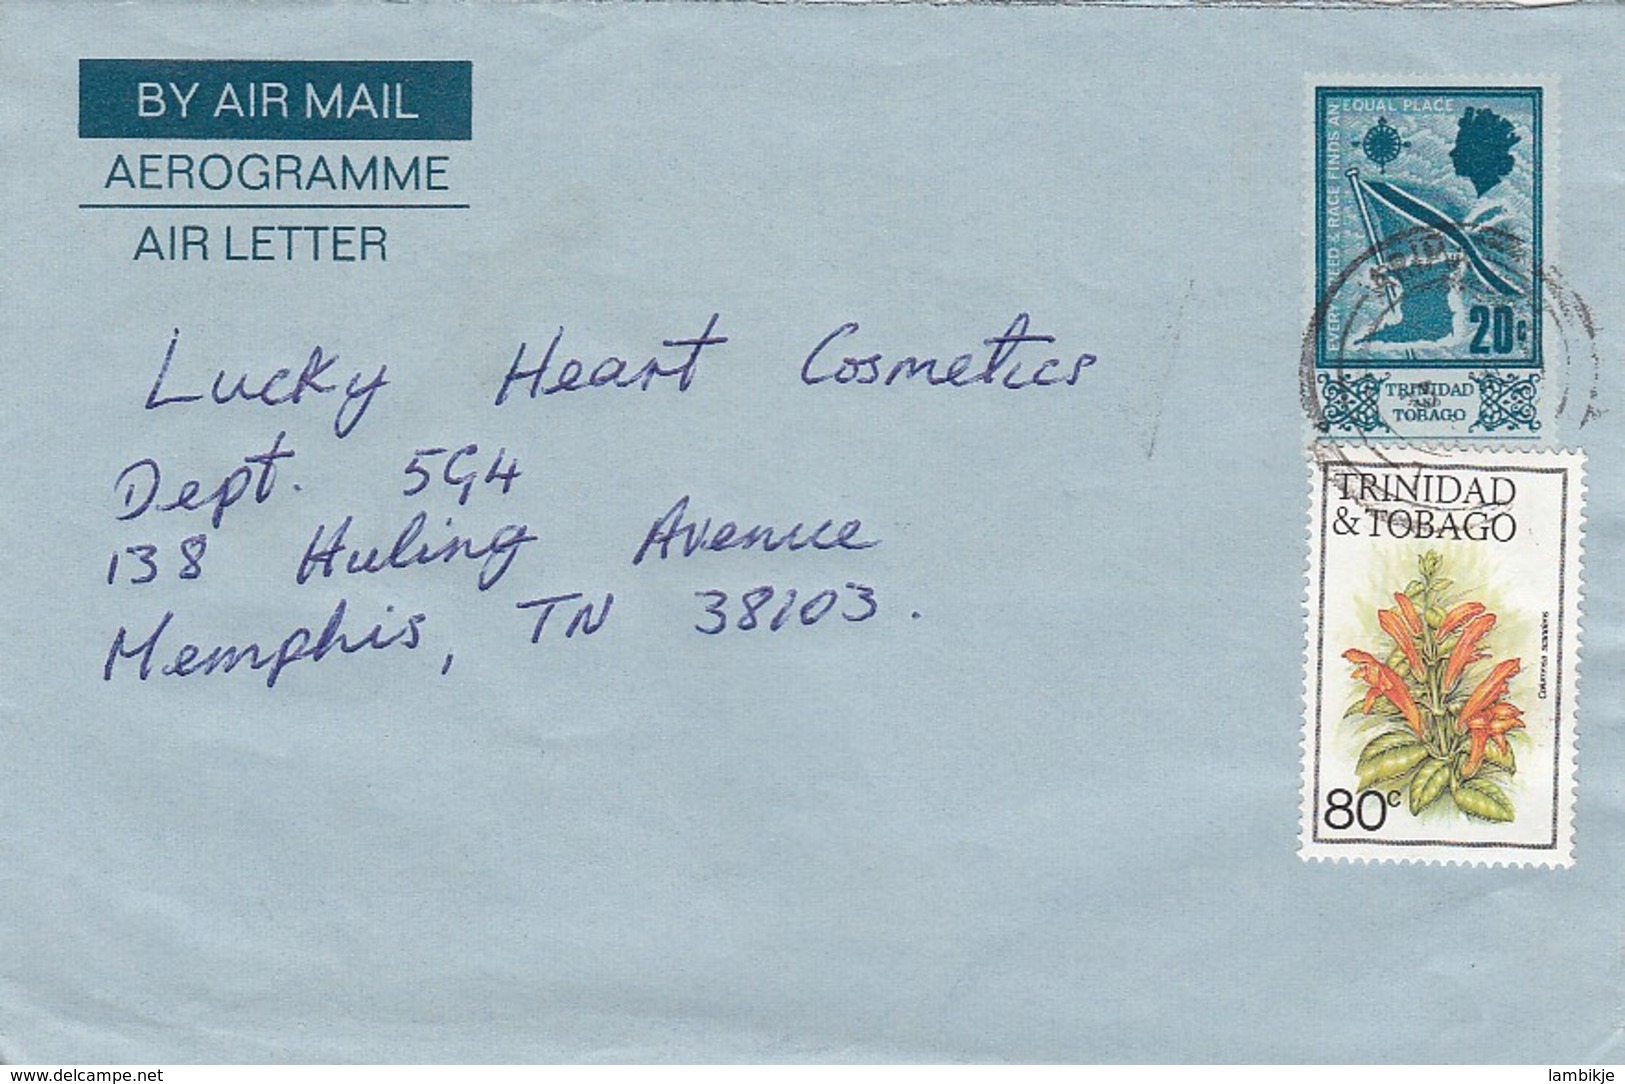 BY AIR MAIL
AEROGRAMME
AIR LETTER
EVERY CREED & RACE FINDS AN EQUAL PLACE
20c
TRINIDAD
AND
TOBAGO
Lucky Heart Cosmetics
Dept. 5G4
138 Huling Avenue
Memphis, TN 38103.
TRINIDAD
& TOBAGO
Columnea scandens
80c
www.delcampe.net
lambikje